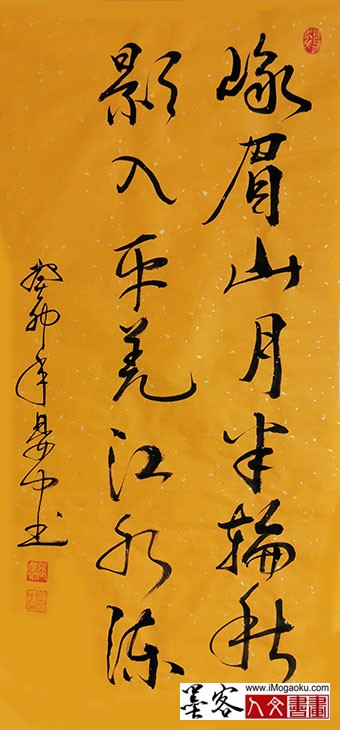 峨眉山月半輪秋
影入平羌江水流
癸卯年中书
墨客
www.iMogaoku.com
人文書畫